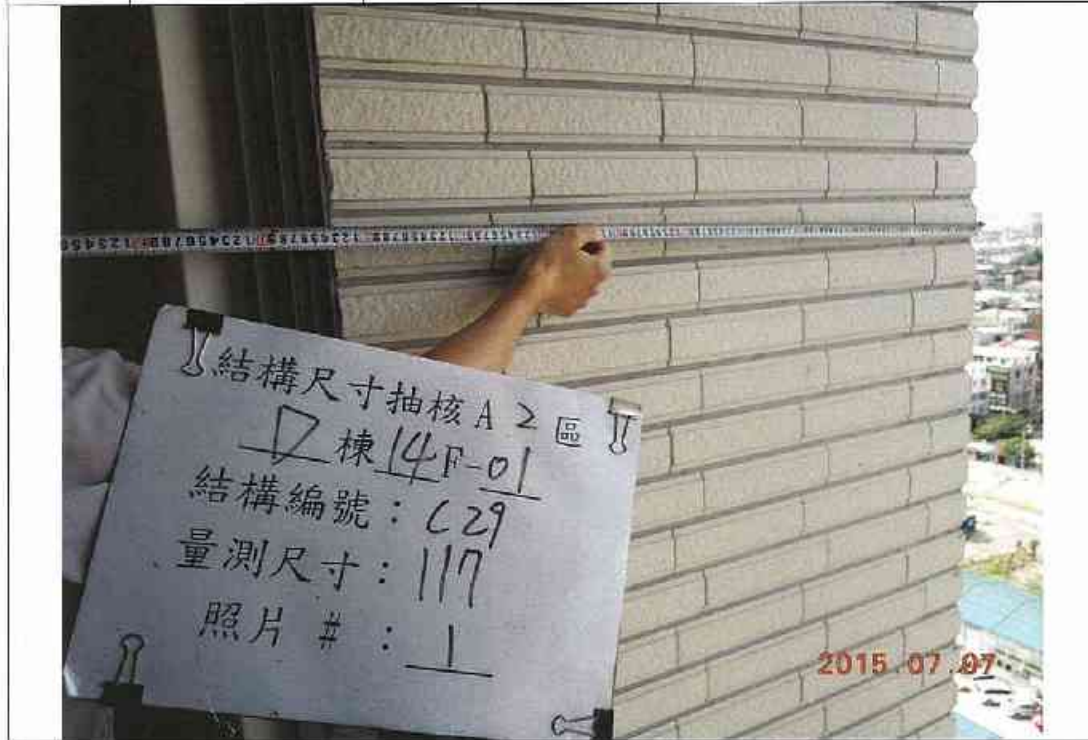 結構尺寸抽核A2區
D棟14F-01
結構編號：C29
量測尺寸：117
照片#：1
2015.07.07